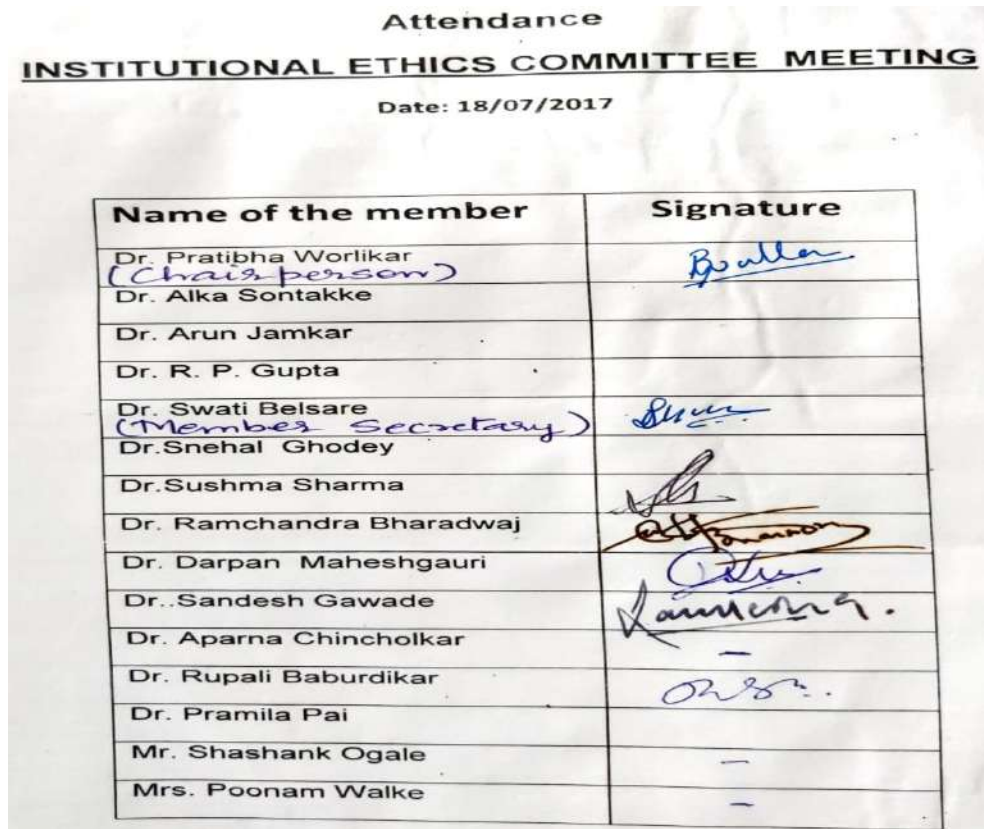 Attendance
INSTITUTIONAL ETHICS COMMITTEE MEETING
Date: 18/07/2017
Name of the member Signature
Dr. Pratibha Worlikar
(Chairperson)
Dr. Alka Sontakke
Dr. Arun Jamkar
Dr. R. P. Gupta
Dr. Swati Belsare
(Member Secretary)
Dr.Snehal Ghodey
Dr.Sushma Sharma
Dr. Ramchandra Bharadwaj
Dr. Darpan Maheshgauri
Dr..Sandesh Gawade
Dr. Aparna Chincholkar –
Dr. Rupali Baburdikar
Dr. Pramila Pai
Mr. Shashank Ogale –
Mrs. Poonam Walke –